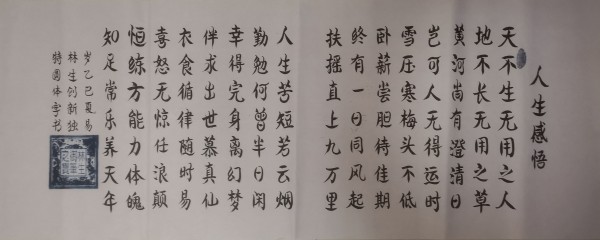 人生感悟
天不生无用之人
地不长无用之草
黄河尚有澄清日
岂可人无得运时
雪压寒梅头不低
卧薪尝胆待佳期
终有一日同风起
扶摇直上九万里
人生苦短若云烟
勤勉何曾半日闲
幸得完身离幻梦
伴求出世慕真仙
衣食循律随时易
喜怒无惊任浪颠
恒练方能力体魄
知足常乐养天年
岁乙巳夏易
林生创新独
特圆体字书